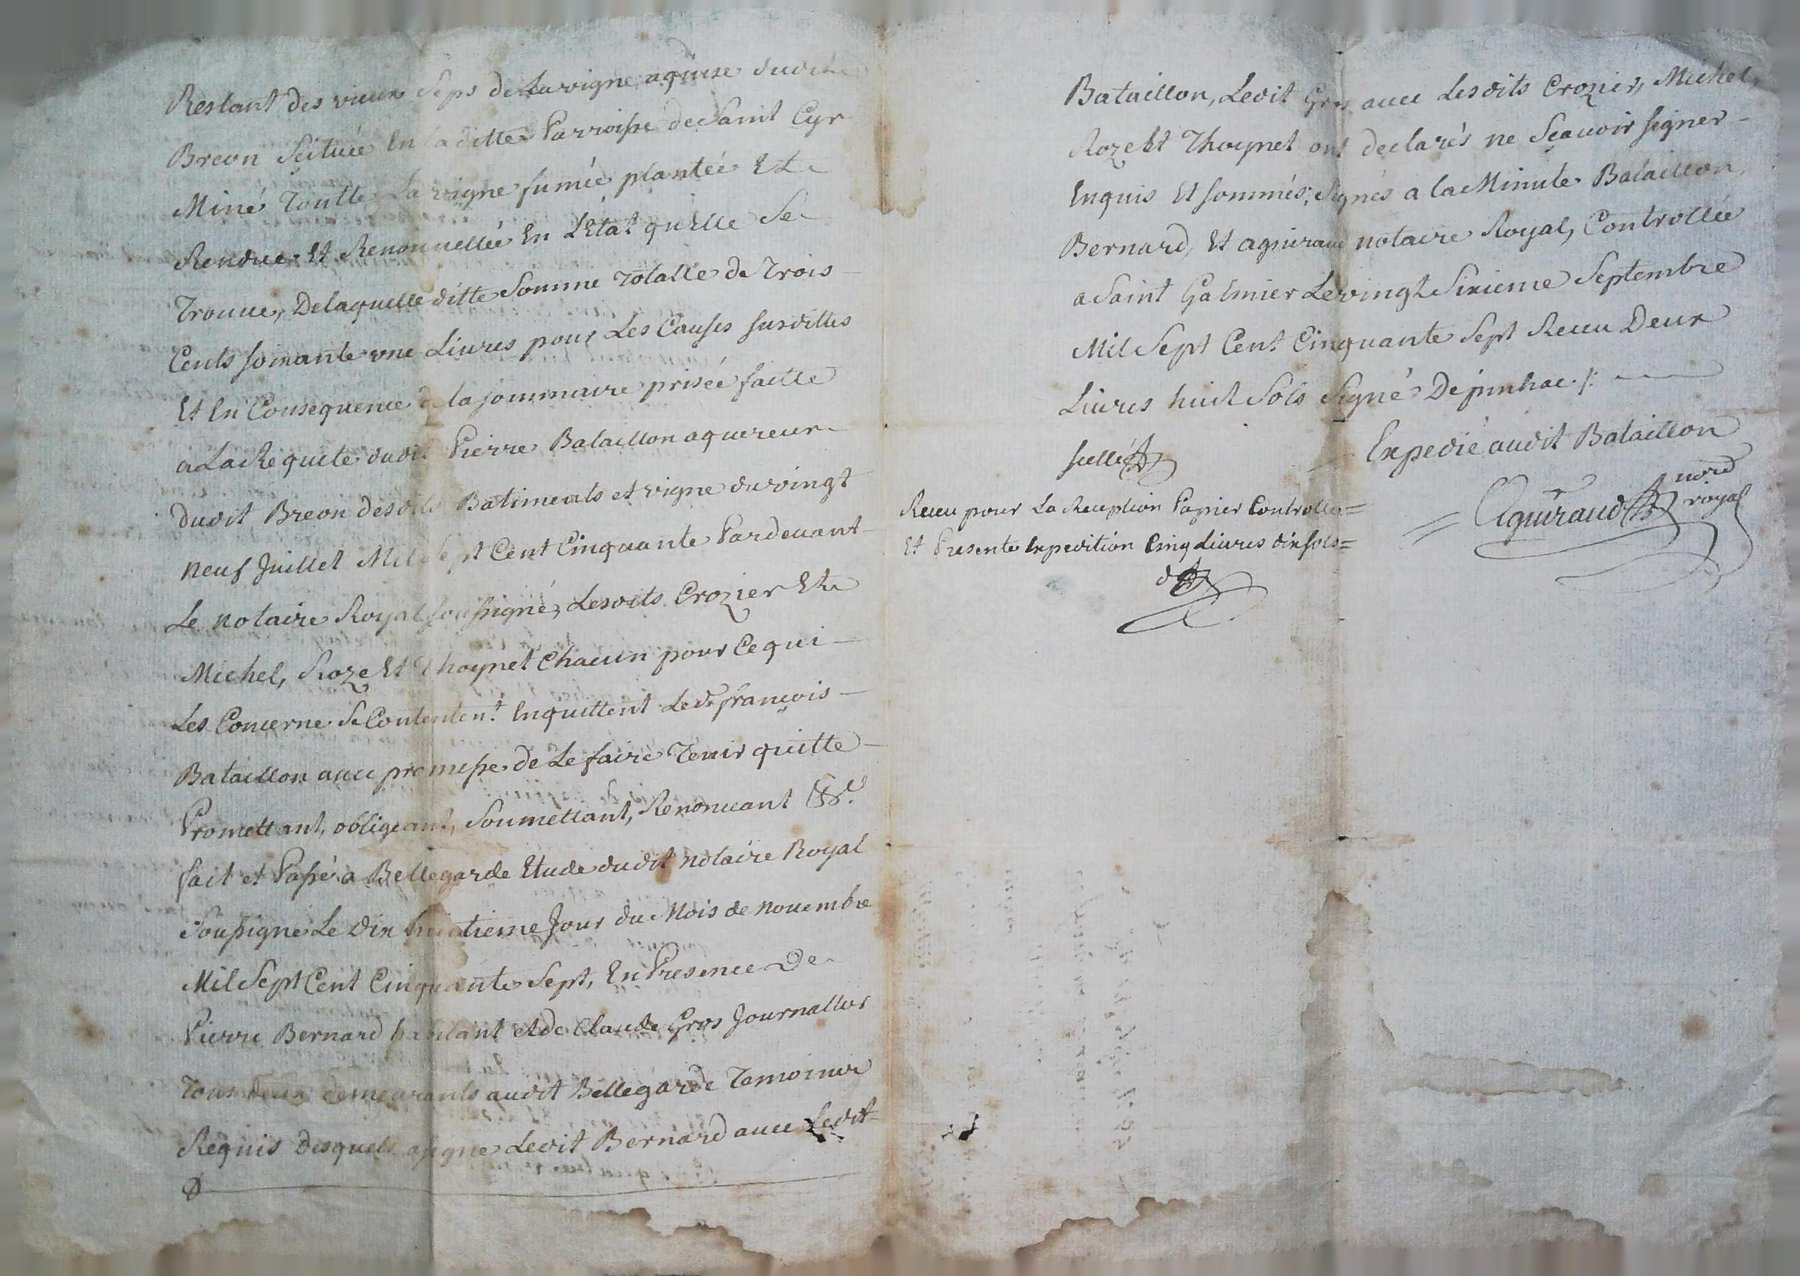 Restant des vieux seps de la vigne aquise dudit
Breon scituée en laditte Parroisse de Saint Cyr
Miné toutte la vigne fumée plantée Et
Rendue Et Renouvellée En L'État qu'elle se
Trouve, De laquelle ditte somme totalle de Trois
Cents soixante une Livres pour Les Causes susdittes
Et En Consequence de la sommaire prisée faitte
a La Requete dudit Pierre Bataillon aquereur
dudit Breon desdits Batiments et vigne du vingt
neuf Juillet Mil Sept Cent Cinquante Pardevant
Le notaire Royal soussigné, Lesdits Crozier Et
Michel, Roze Et Thoynet Chacun pour Ce qui
Les Concerne se Contentent Enquittent Led. françois
Bataillon avec promesse de Le faire Tenir quitte
Promettant, obligeant, Soumettant, Renoncant &c.
fait et Passé a Bellegarde Etude dudit notaire Royal
Soussigné Le dix huitieme Jour du Mois de novembre
Mil Sept Cent Cinquante Sept, En Presence De
Pierre Bernard habitant et de Claude Gros Journallier
Tous deux demeurants audit Bellegarde Temoins
Requis desquels a signé Ledit Bernard avec Ledit
Bataillon, Ledit Gros avec Lesdits Crozier, Michel,
Roze Et Thoynet ont declarés ne Sçavoir signer
Enquis Et sommés; Signés a la Minute Bataillon,
Bernard, Et aguiraud notaire Royal, Controllée
a Saint Galmier Le vingt Sixieme Septembre
Mil Sept Cent Cinquante Sept Receu Deux
Livres huit Sols Signé Dejunhac ./.
scellé
Expedié audit Bataillon
Receu pour La Reception Papier Controlle
Et Presente Expedition Cinq Livres dix sols
Aguiraud nore royal